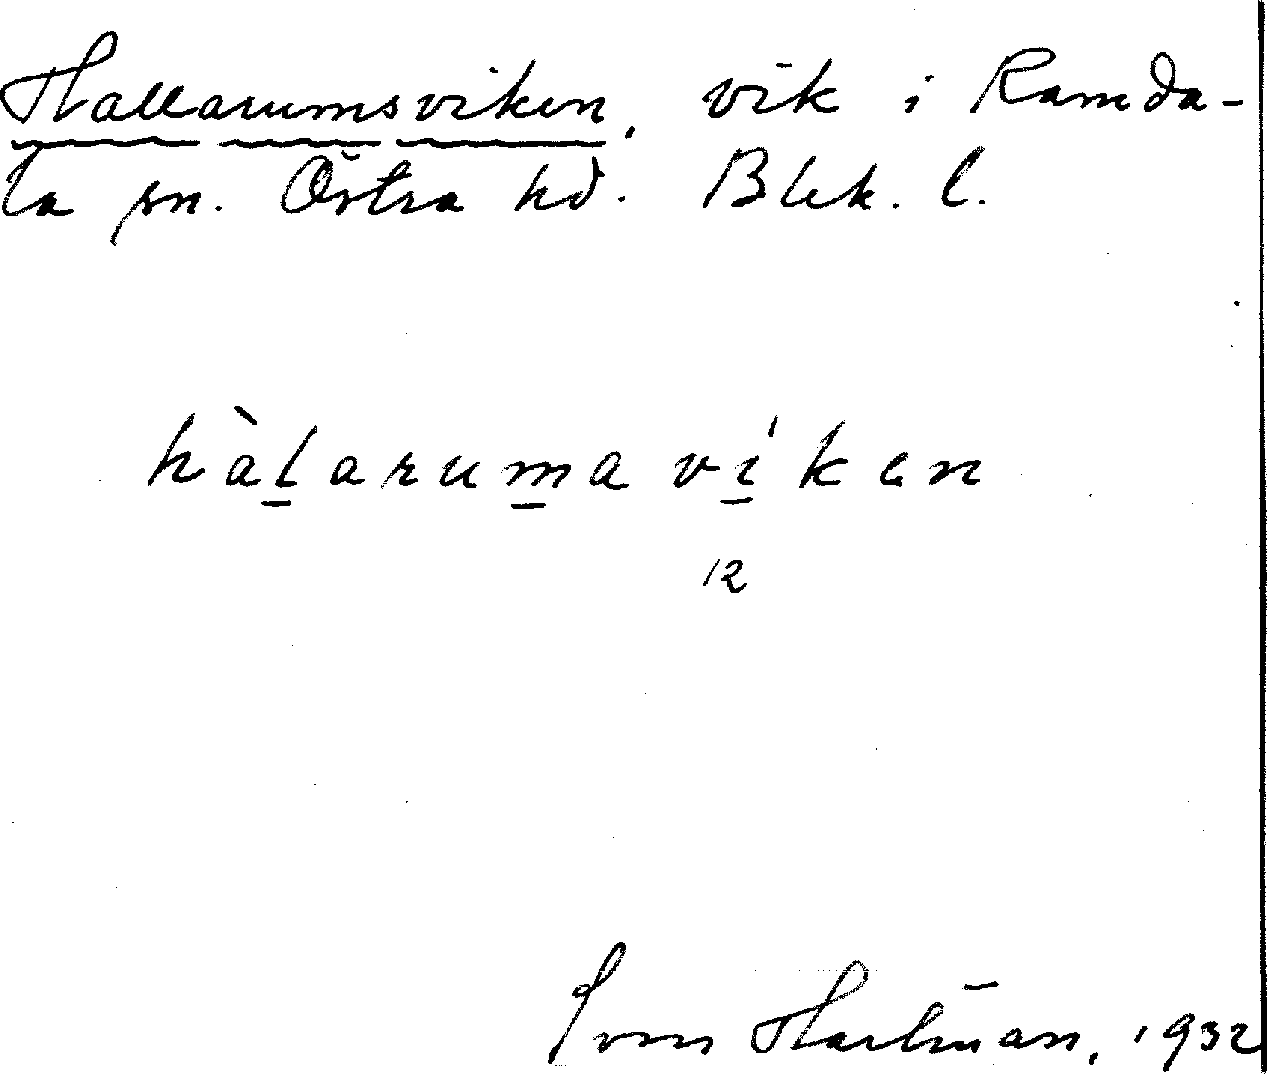 Hallarumsviken, vik i Ramda-
la sn. Östra hd. Blek. l.
hàl̲arum̲a ví̲ken
12
Hartman, 1932